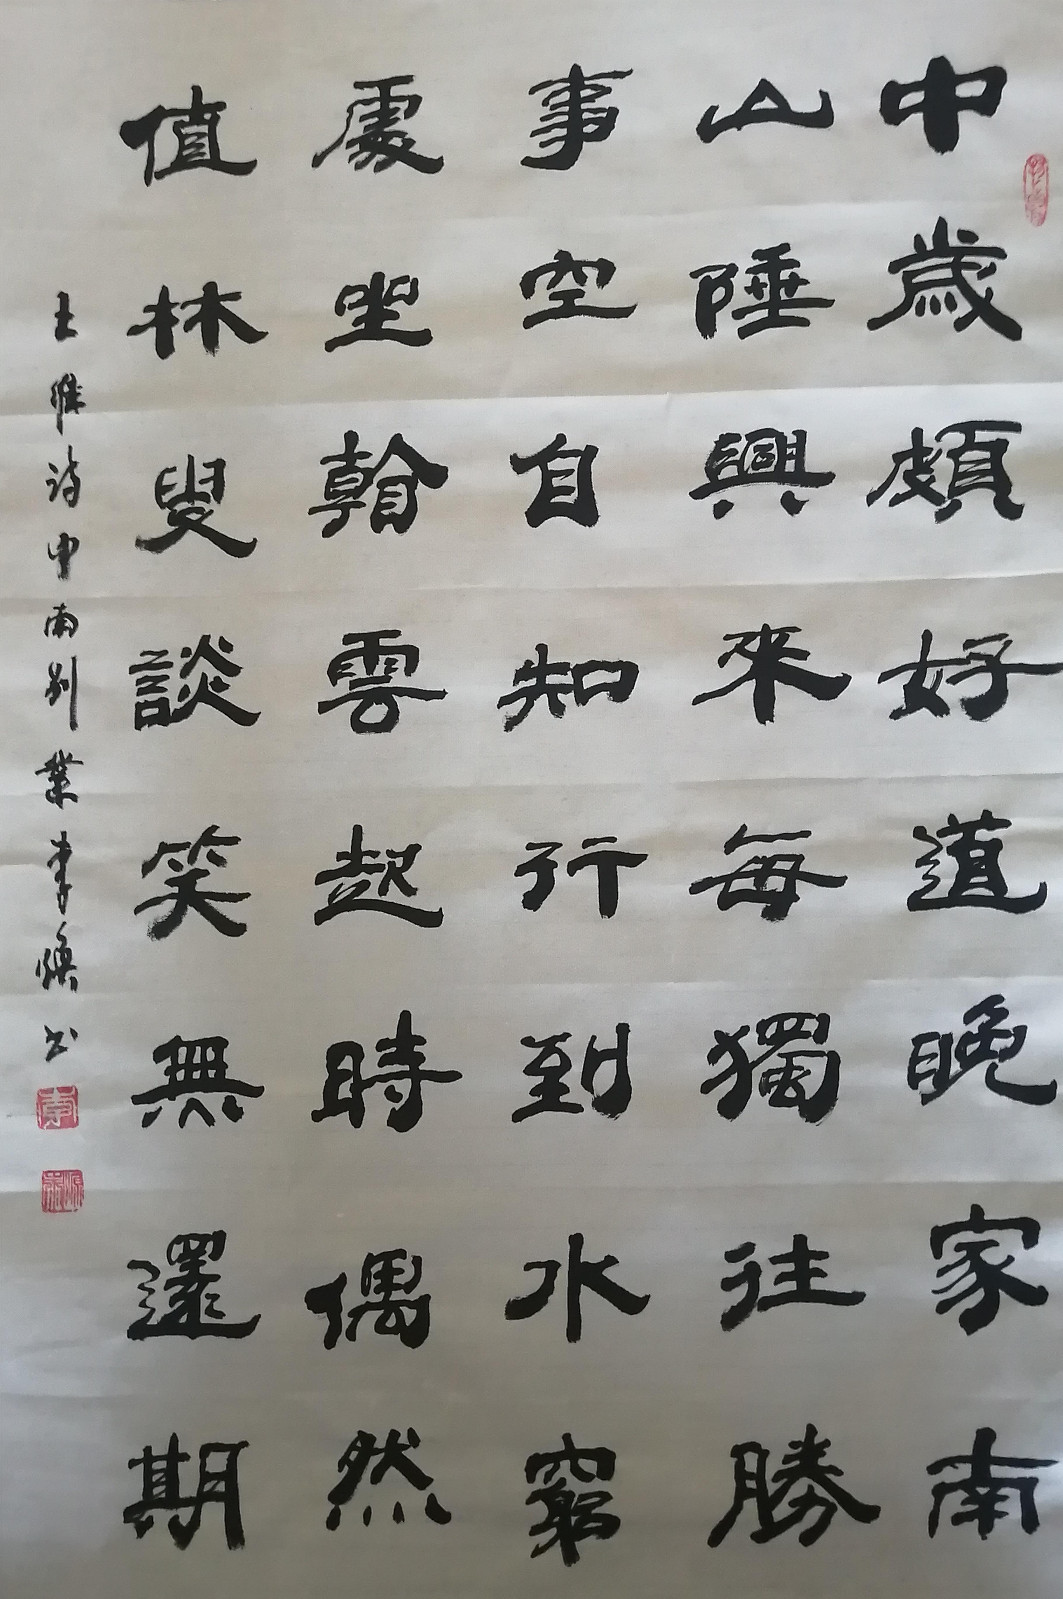 中歲頗好道晚家南
山陲興來每獨往勝
事空自知行到水窮
處坐看雲起時偶然
值林叟談笑無還期
王維詩中南別業李煥书